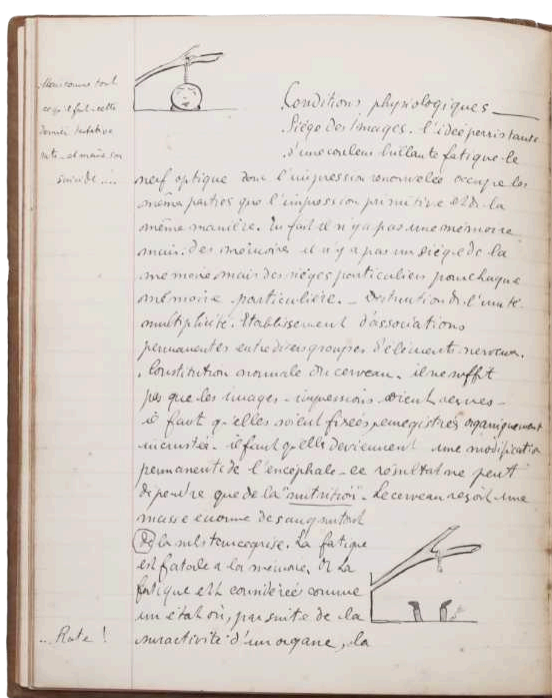 Conditions physiologiques
Siège des Images. l'idée persistante
d'une couleur brillante fatigue le
nerf optique donc l'impression renouvelée occupe les
même parties que l'impression primitive et de la
même manière. En fait il n'y a pas une mémoire
mais des mémoires il n'y a pas un siège de la
memoire mais des sièges particuliers pour chaque
mémoire particulière. _ Destruction de l'unité
multiplicité. Etablissement d'associations
permanentes entre divers groupes d'éléments nerveux.
. Constitution normale du cerveau. il ne suffit
pas que les images - impressions soient
il faut qu'elles soient fixées enregistrées organiquement
incrustées - il faut qu'elle deviennent une modification
permanente de l'encéphale - ce résultat ne peut
dépendre que de la "nutrition" - Le cerveau reçoit une
masse enorme de sang surtout
de la substance grise. La fatigue
est fatale a la mémoire. Or La
fatigue est considérée comme
un état où, par suite de la
suractivité d'un organe, la
suicide ....
... Rate !